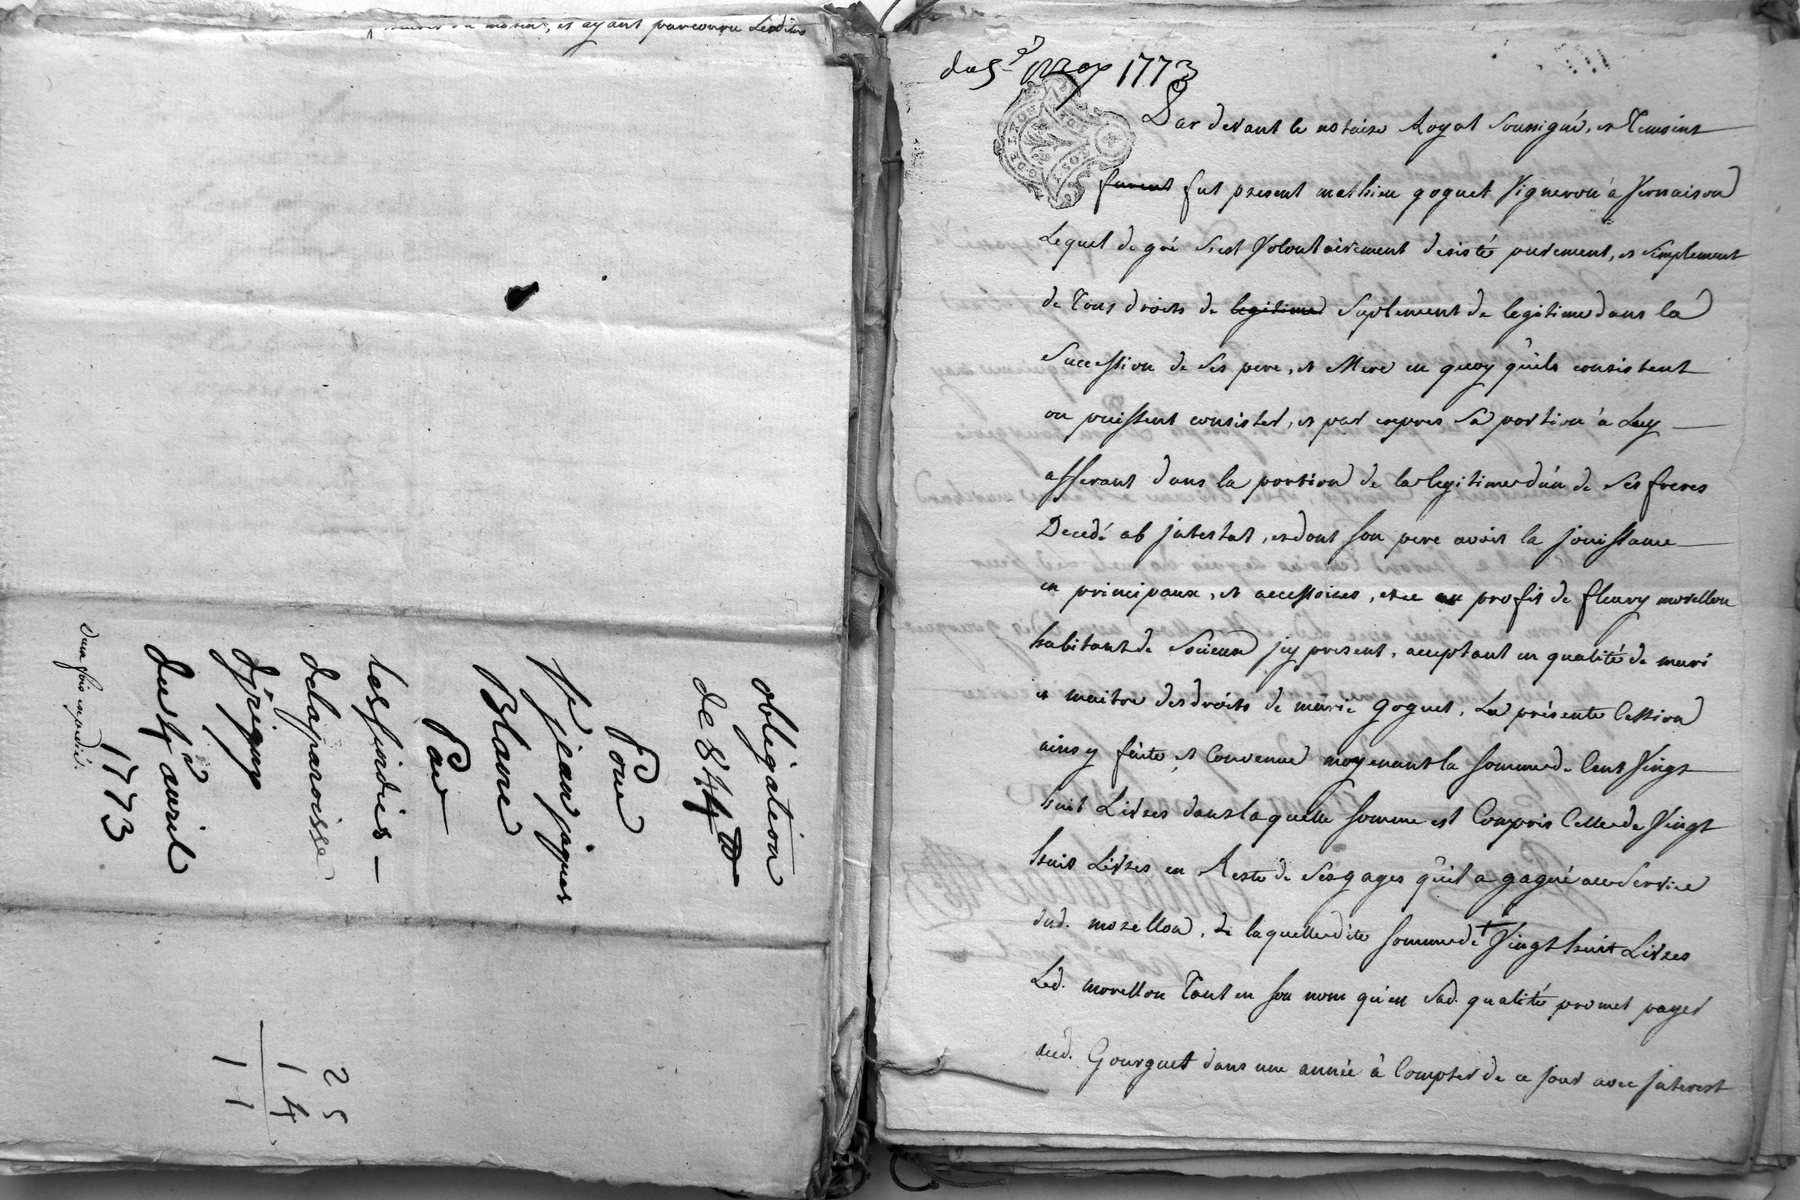 et ayant parcouru Lesdittes
obligation
de 844 ₶
Pour
Sr jean jaques
Blanc
Par
les sindics –
de la paroisse
d'jrigny
du 4e avril
1773
d'une fois expedié.
25
14
11
du 5e may 1773
G DE LYON
Par devant le notaire Royal soussigné, et Temoins
furent fut present mathieu goguet Vigneron à Vernaison
Lequel de gré s'est Volontairement desisté purement, et simplement
de Tous droits de legitime suplement de legitime dans la
succession de ses pere, et Mere en quoy qu'ils consistent
ou puissent consister, et par expres sa portion à Luy
afferant dans la portion de la legitime d'un de ses freres
Decedé ab jntestat, et dont son pere avoit la jouissance
en principaux, et accessoires, et ce au profit de fleury morellon
habitant de Soucieux jcy present, acceptant en qualité de mari
et maitre des droits de marie goguet, La présente Cession
ainsy faite, et Convenue moyenant la somme de Cent Vingt
huit Livres dans laquelle somme est Compris Celle de Vingt
huit Livres en Reste de ses gages qu'il a gagné au service
dud. morellon, de laquelle dite somme de + Vingt huit Livres
Led. morellon Tant en son nom qu'en sad. qualité promet payer
aud. Gourguet dans une année à Compter de ce jour avec jnterest